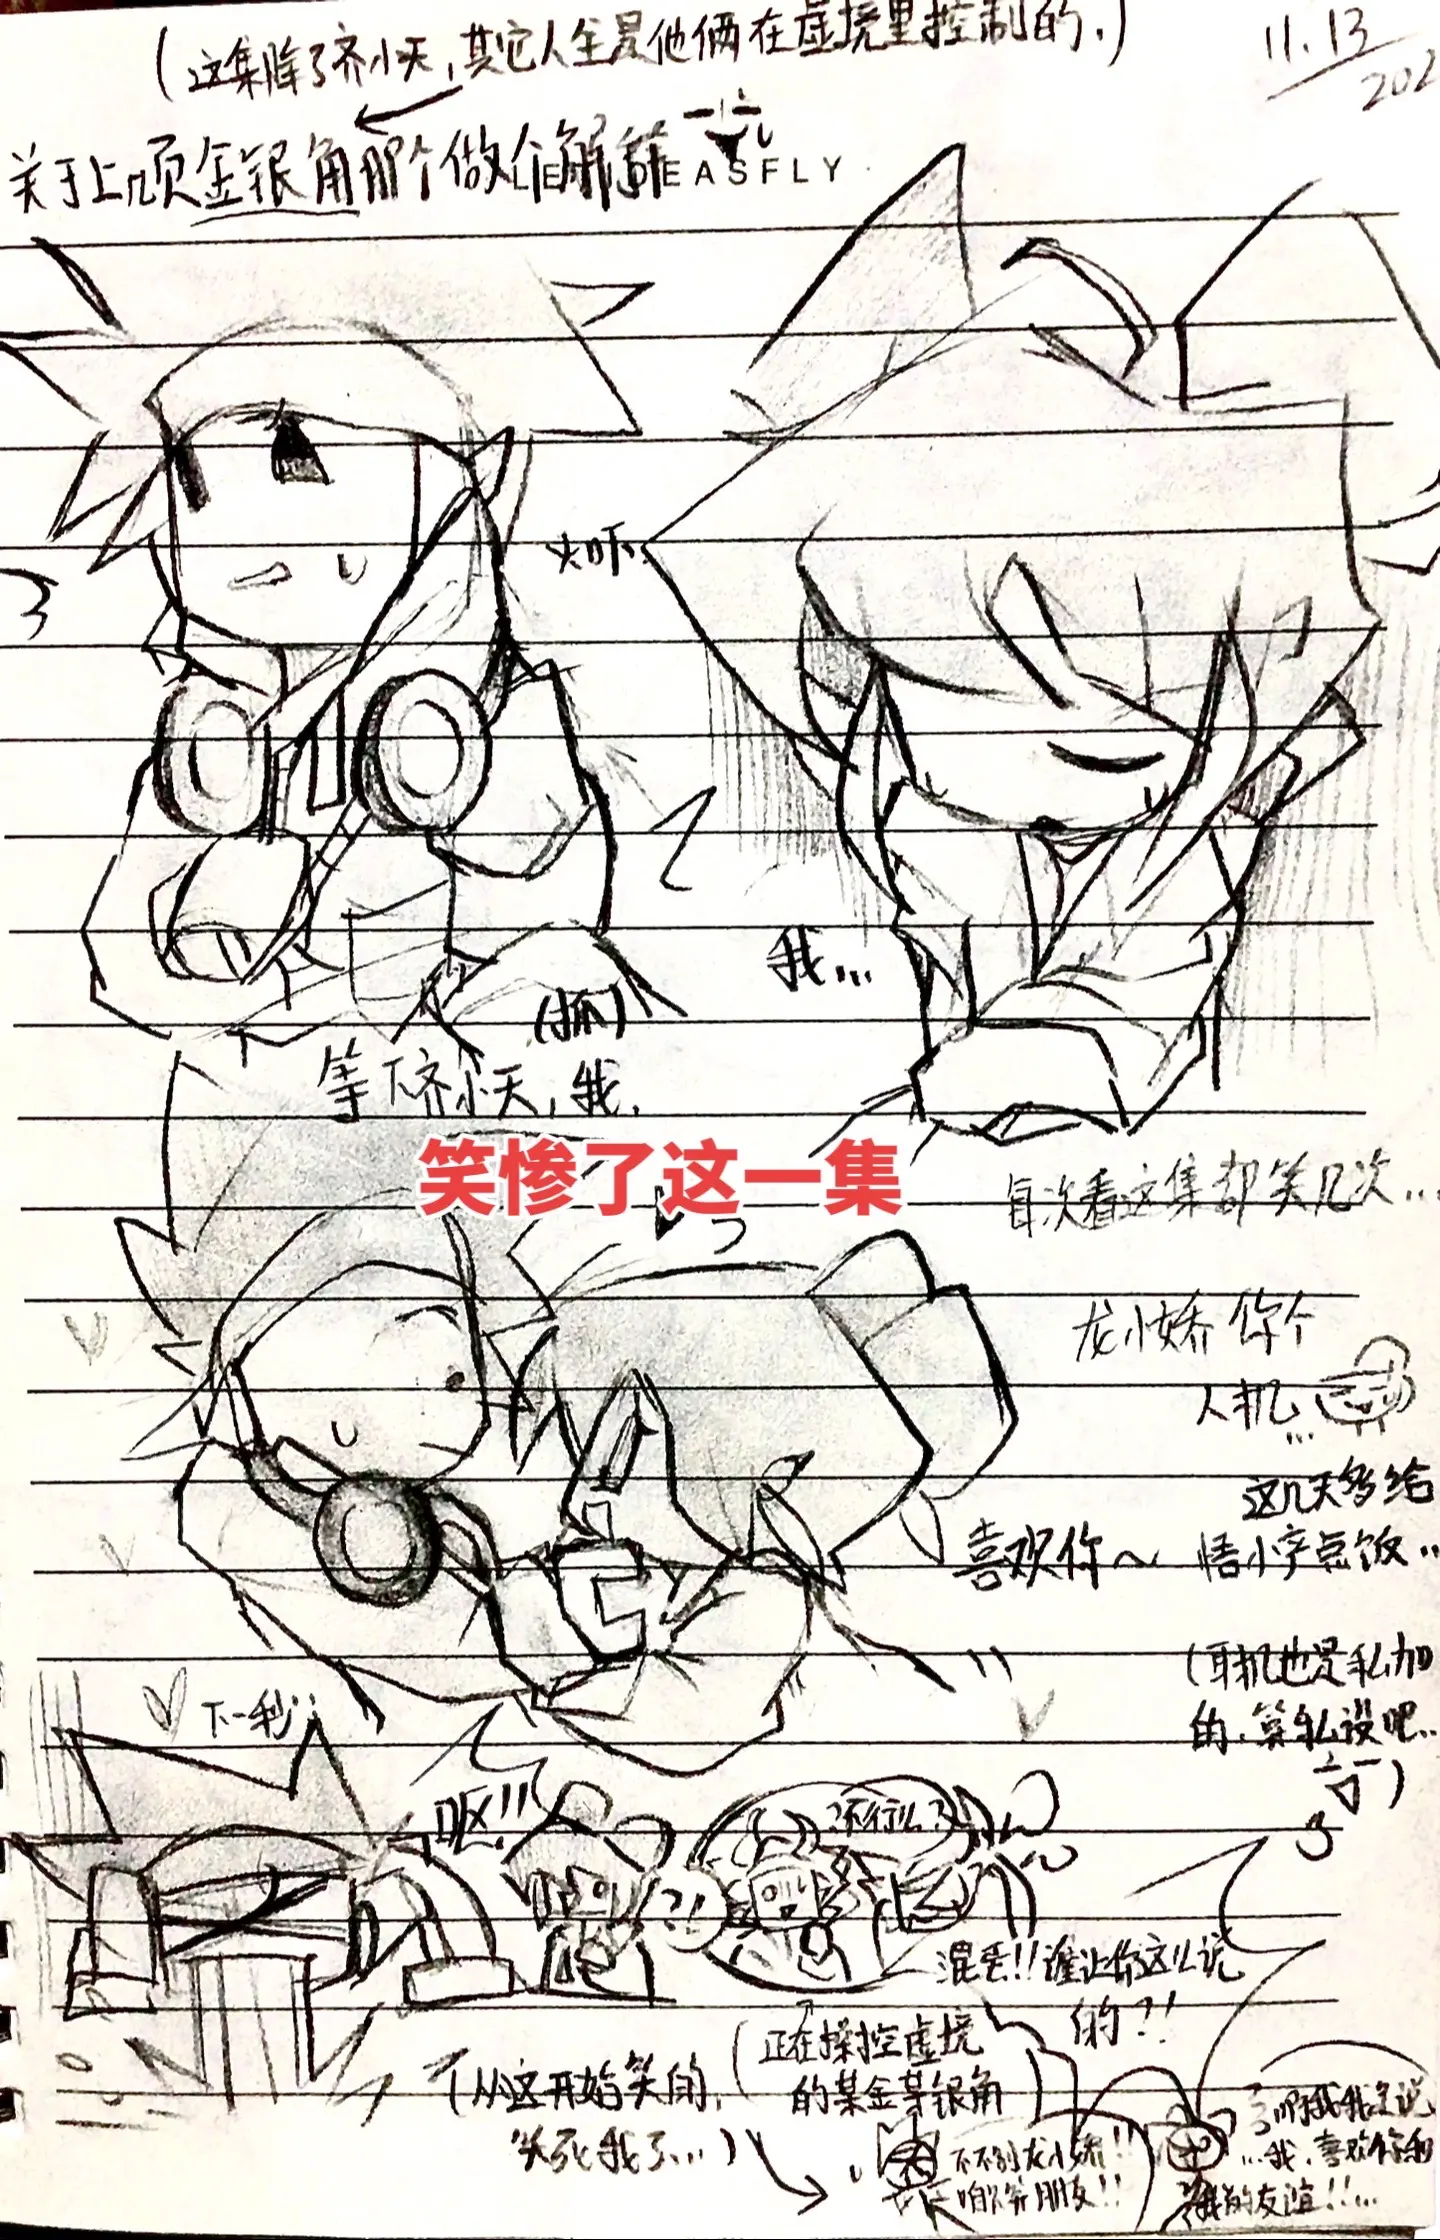 (这集除了齐小天，其它人全是他俩在虚境里控制的.)
11.13
202
关于上几页金银角那个做个解释
EASFLY
我...
(抓)
等下齐小天，我.
笑惨了这一集
每次看这集都笑几次...
龙小娇你个
人机...
这几天多给
喜欢你～
悟小空点饭..
(耳机也是私加
的.算私设吧..
)
下一秒:
呕!!
?不行么?
?!
混丢!!谁让你这么说
的?!
(正在操控虚境
的某金某银角)
(从这开始笑的,
笑死我了...)
不不别龙小娇!!
咱不算朋友!!
...我.喜欢你和
我的友谊!!...